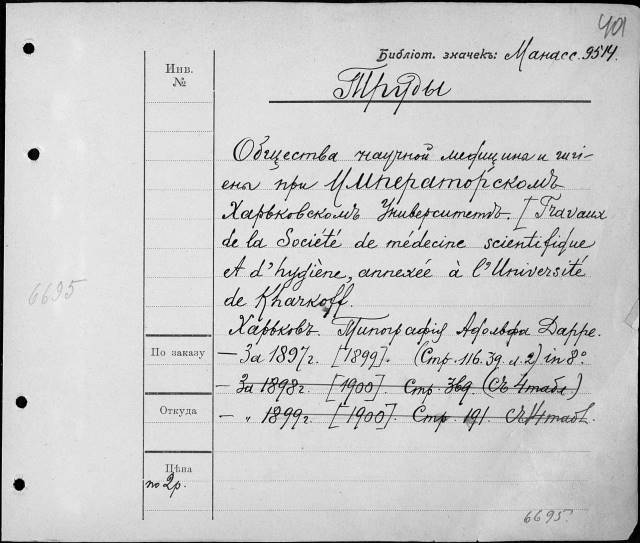 401
Библіот. значекъ: Манасс. 9514.
Инв.
№
Труды
Общества научной медицины и гигі-
ены при Императорскомъ
Харьковскомъ Университетѣ. [Travaux
de la Société de médecine scientifique
et d'hygiène, annexée à l'Université
de Kharkoff.
6695
Харьковъ. Типографія Адольфа Дарре.
По заказу
— За 1897г. [1899]. (Стр. 116. 39. л. 2) in 8°.
— За 1898г. [1900]. Стр. (съ 4 табл.)
Откуда
— " 1899г. [1900]. Стр. 191. съ табл.
Цѣна
по 2р.
6695.